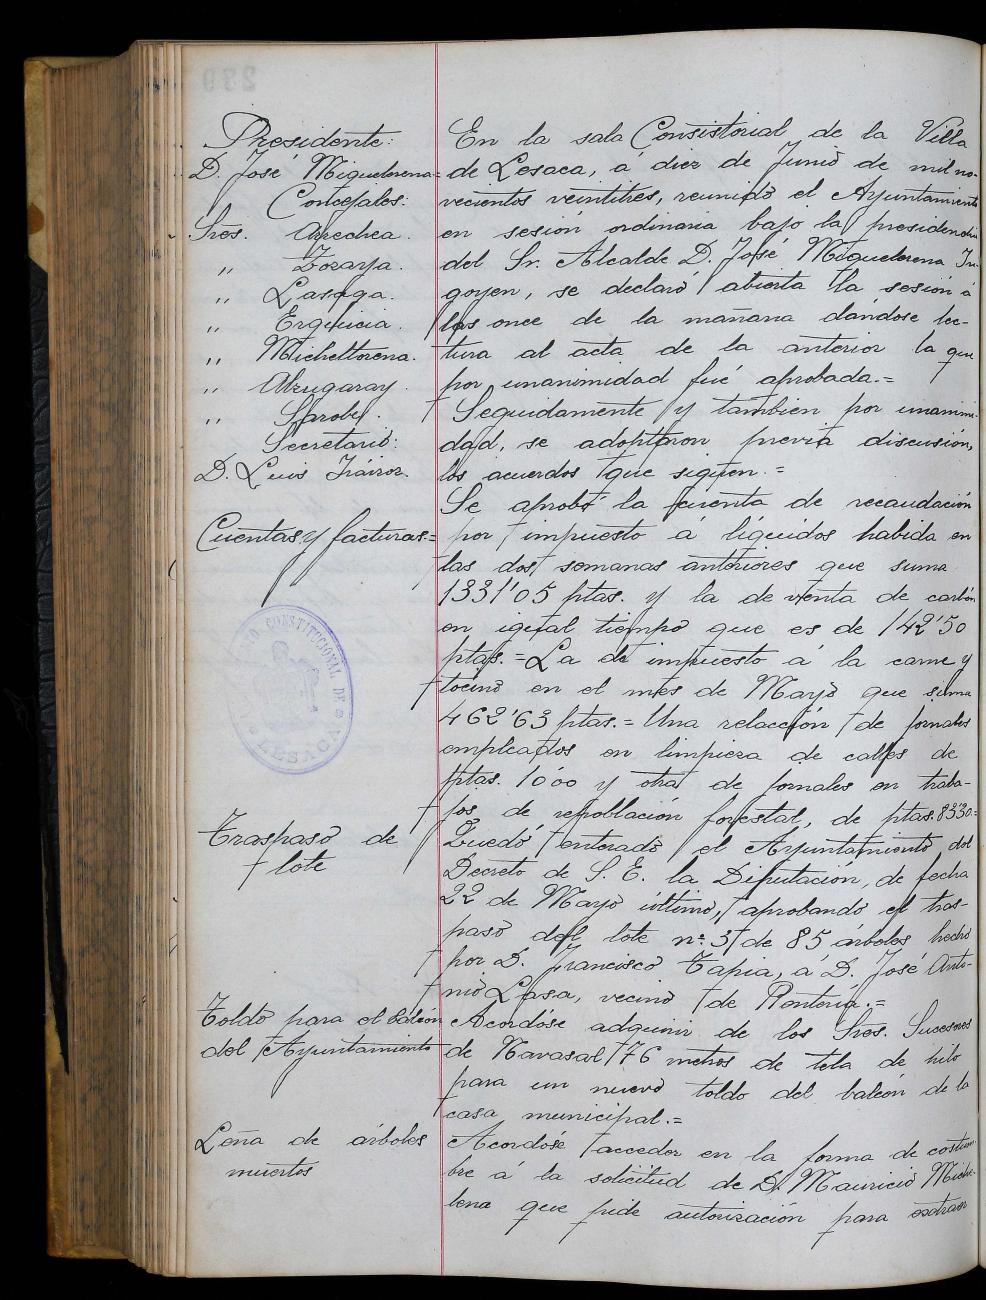 Presidente:
D. José Miguelorena=
Concejales:
Sres. Arrechea.
,, Zozaya.
,, Lasaga.
,, Erquicia.
,, Micheltorena.
,, Alzugaray.
,, Sarobe.
Secretario:
D. Luis Iráizoz.
En la sala Consistorial de la Villa
de Lesaca, á diez de Junio de mil no-
vecientos veintitres, reunido el Ayuntamiento
en sesión ordinaria bajo la presidencia
del Sr. Alcalde D. José Miguelorena Iri-
goyen, se declaró abierta la sesión á
las once de la mañana dándose lec-
tura al acta de la anterior la que
por unanimidad fué aprobada.=
Seguidamente y tambien por unanimi-
dad, se adoptaron previa discusión,
los acuerdos que siguen.=
Cuentas y facturas.=
Se aprobó la cuenta de recaudación
por impuesto á líquidos habida en
las dos semanas anteriores que suma
1331'05 ptas. y la de venta de carbón
en igual tiempo que es de 142'50
ptas.=La de impuesto á la carne y
tocino en el mes de Mayo que suma
462'63 ptas.= Una relacción de jornales
empleados en limpieza de calles de
ptas. 10'00 y otra de jornales en traba-
jos de repoblación forestal, de ptas. 833'0=
CONSTITUCIONAL DE
LESACA
Traspaso de
lote
Quedó enterado el Ayuntamiento del
Decreto de S. E. la Diputacion, de fecha
22 de Mayo último, aprobando el tras-
paso del lote nº 3 de 85 árboles hecho
por D. Francisco Tapia, á D. José Anto-
nio Lasa, vecino de Rentería.=
Toldo para el balcón
del Ayuntamiento
Acordóse adquirir de los Sres. Sucesores
de Navasal 76 metros de tela de hilo
para un nuevo toldo del balcón de la
casa municipal.=
Leña de árboles
muertos
Acordóse acceder en la forma de costum-
bre á la solicitud de D. Mauricio Miche-
lena que pide autorización para extraer